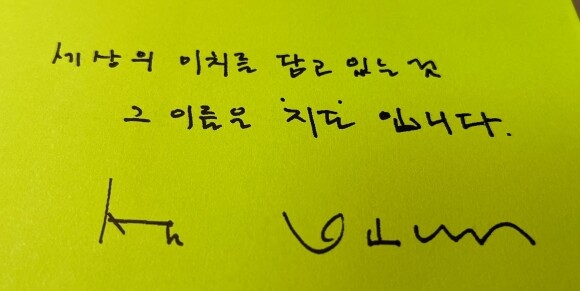 세상의 이치를 담고 있는 것
그 이름은 '지도' 입니다.